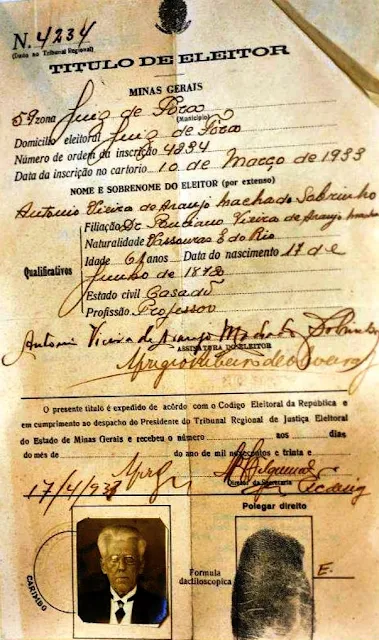 N. 4234
(Dado no Tribunal Regional)
TITULO DE ELEITOR
MINAS GERAIS
59 zona Juiz de Fóra
(Municipio)
Domicilio eleitoral Juiz de Fóra
Número de ordem da inscrição 4234
Data da inscrição no cartorio 10 de Março de 1933
NOME E SOBRENOME DO ELEITOR (por extenso)
Antonio Vieira de Araujo Machado Sobrinho
Filiação Dr. Vieira de Araujo Machado
Naturalidade Vassouras E do Rio
Idade 61 anos Data do nascimento 17 de
Qualificativos
Junho de 1872
Estado civil Casado
Profissão Professor
Antonio Vieira de Araujo Machado Sobrinho
ASSINATURA DO ELEITOR
O presente título é expedido de acôrdo com o Codigo Eleitoral da República e
em cumprimento ao despacho do Presidente do Tribunal Regional de Justiça Eleitoral
do Estado de Minas Gerais e recebeu o número aos dias
do mês de do ano de mil novecentos e trinta e
Director da Secretaria
17/4/933
Polegar direito
CARIMBO
Formula
dactiloscopica
E.